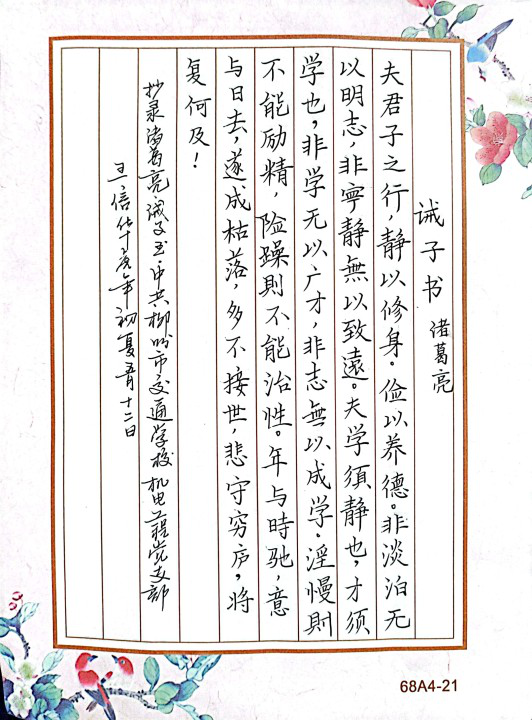 诫子书 诸葛亮
夫君子之行，静以修身。俭以养德。非淡泊无
以明志，非寧静無以致遠。夫学須静也，才须
学也，非学无以广才，非志無以成学。淫慢則
不能励精，险躁則不能治性。年与時驰，意
与日去，遂成枯落，多不接世，悲守穷庐，将
复何及！
抄录诸葛亮诫子书 中共柳州市交通学校机电工程党支部
年初夏五月十二日
68A4-21